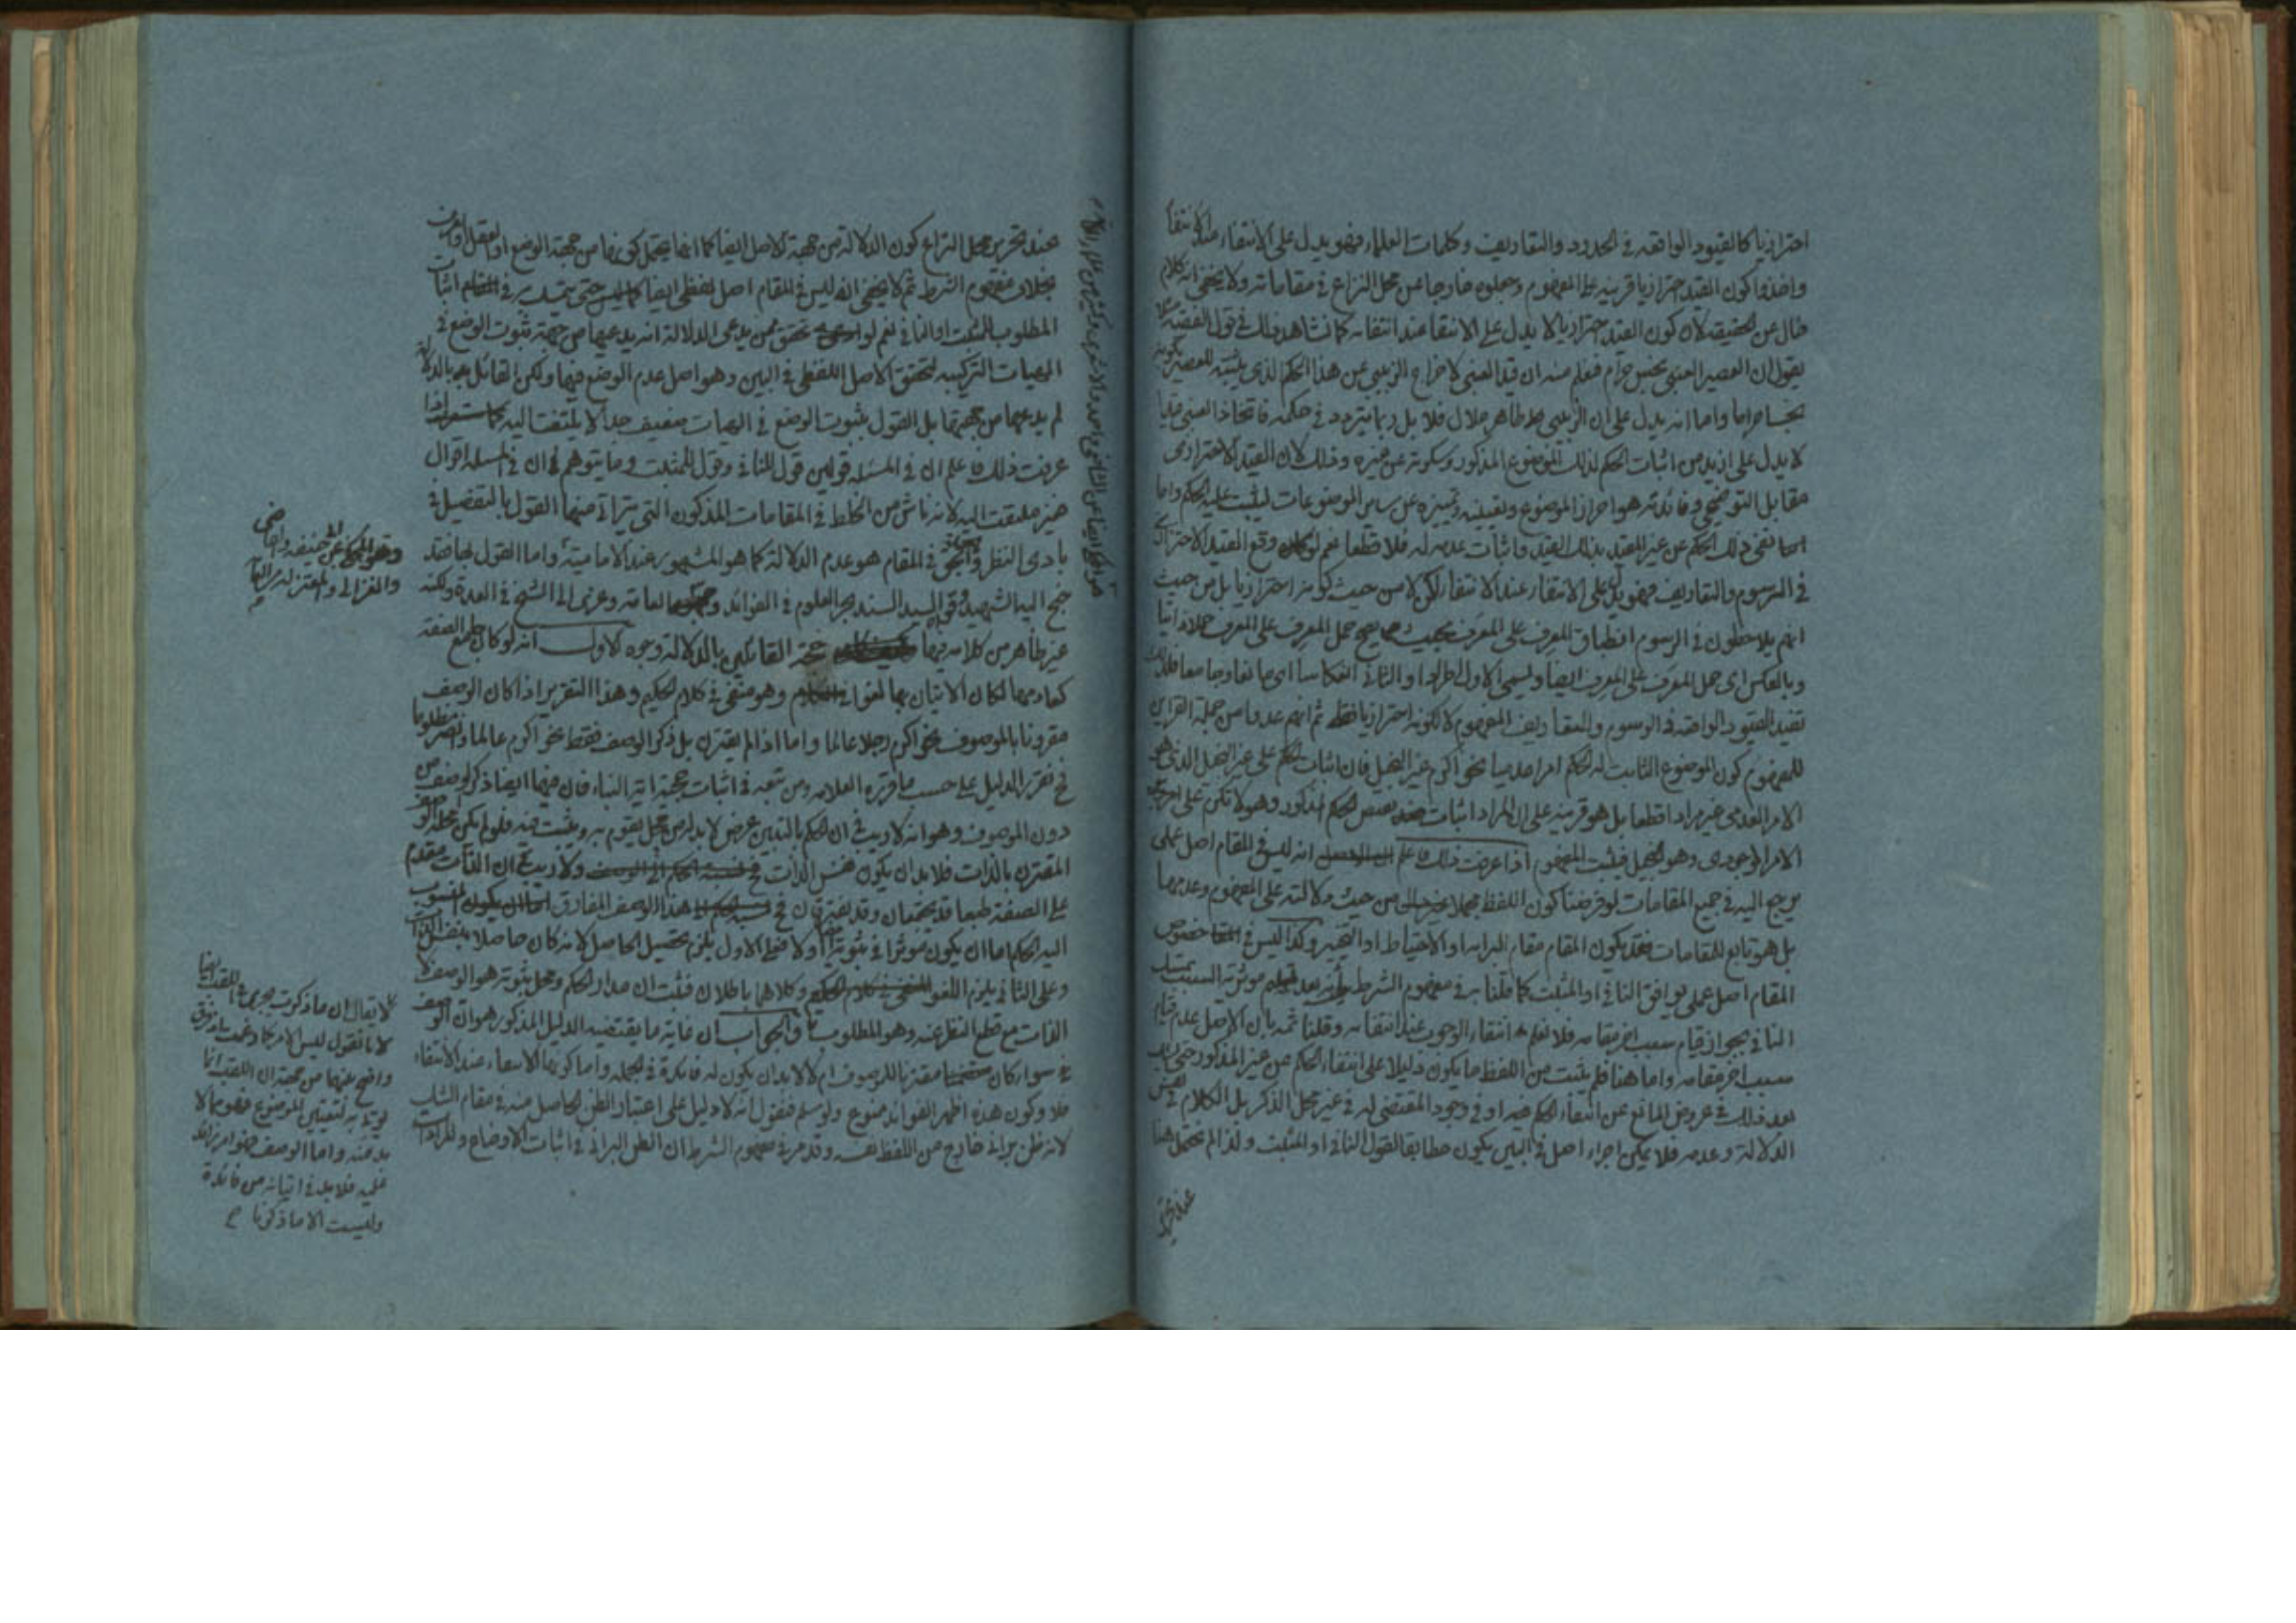 احترازيا كالقيود الواقعة في الحدود والتعاريف وكلمات العلماء فهو يدل على الانتفاء عند الانتفا
واخذوا كون القيد احترازيا قرينة على المفهوم وجعلوه خارجا عن محل النزاع في مقاماته ولا يخفى انه كلام
خال عن تحقيق لان كون القيد احترازيا لا يدل على الانتفا عند انتفائه كما نشاهد ذلك في قول الفقيه
يقول ان العصير العنبي نجس حرام فيعلم منه ان قيد العنبي لاخراج الزبيبي عن هذا الحكم الذي يثبته للعصير بكونه
نجسا حراما واما انه يدل على ان الزبيبي طاهر حلال فلا بل ربما يتردد في حكمه فاتخاذ العنبي قيدا
لا يدل على ازيد من اثبات الحكم لذلك الموضوع المذكور وسكوته عن غيره وذلك لان القيد الاحترازي
مقابل التوضيحي وفائدته هو احراز الموضوع وتعيينه وتميزه عن ساير الموضوعات ليثبت عليه الحكم واما
نفى ذلك الحكم عن غير المقيد بذلك القيد واثبات عدمه له فلا قطعا نعم لو وقع القيد الاحترازي
في الرسوم والتعاريف فهو يدل على الانتفاء عند الانتفاء لكن لا من حيث كونه احترازيا بل من حيث
انهم يلاحظون في الرسوم انطباق المعرف على المعرف بحيث يصح حمل المعرف على المعرف حملا ذاتيا
وبالعكس اى حمل المعرف على المعرف ايضا ويسمى الاول اطرادا والثاني انعكاسا اى مانعا وجامعا فلذلك
تفيد القيود الواقعة في الرسوم والتعاريف المفهوم لا لكونه احترازيا فقط ثم انهم عدوا من جملة القراين
للمفهوم كون الموضوع الثابت له الحكم امرا عدميا نحو اكرم غير البخيل فان اثبات الحكم على غير البخيل الذي هو
الامر العدمي غير مراد قطعا بل هو قرينة على ان المراد اثبات نقيض الحكم المذكور
الامر الوجودي وهو البخيل فيثبت المفهوم اذا عرفت ذلك فاعلم انه ليس في المقام اصل عملى
يرجع اليه في جميع المقامات لو فرضنا كون اللفظ مجملا من حيث دلالته على المفهوم وعدمها
بل هو تابع للمقامات فقد يكون المقام مقام البرائه او الاحتياط او التخيير وكذا ليس في خصوص
المقام اصل عملى يوافق النافي او المثبت كما قلنا به في مفهوم الشرط
النافي بجواز قيام سبب اخر مقامه فلا نعلم انتفاء الوجوب عند انتفائه وقلنا ثمه بان الاصل عدم قيام
سبب اخر مقامه واما هنا فلم يثبت من اللفظ ما يكون دليلا على انتفاء الحكم عن غير المذكور حتى
بعد ذلك في عروض المانع عن انتفاء الحكم فيه او في وجود المقتضى له في غير محل الذكر بل الكلام في نفس
الدلالة وعدمه فلا يمكن اجراء اصل في البين يكون مطابقا لقول النافي او المثبت ولذا لم يحتمل هنا
عند تحرير
عند تحرير محل النزاع كون الدلالة من جهة الاصل ايضا كما انها يحتمل كونها من جهة الوضع او العقل او العرف
بخلاف مفهوم الشرط ثم لا يخفى انه ليس في المقام اصل لفظى ايضا حتى يتمسك به في اثبات
المطلوب المثبت او النافي نعم لو تحقق ممن يدعى الدلالة انه يدعيها من جهة ثبوت الوضع في
الهيات التركيبيه لتحقق الاصل اللفظى في البين وهو اصل عدم الوضع فيها ولكن القائل بالدلالة
لم يدعيها من جهتها بل القول بثبوت الوضع في الهيات ضعيف جدا لا يلتفت اليه اذا
عرفت ذلك فاعلم ان في المسئلة قولين قول النافي وقول المثبت وما يتوهم ان في المسئله اقوال
غير ملتفت اليه لانه ناش من الخلط في المقامات المذكوره التي يترائى منها القول بالتفصيل في
بادى النظر والحق في المقام هو عدم الدلالة كما هو المشهور عند الامامية واما القول بها فقد
جنح اليها الشهيد وقواه السيد السند بحر العلوم في الفوائد العامة وعزى الى الشيخ في العدة ولكنه
غير ظاهر من كلامه فيها حجة القائلين بالدلالة وجوه الاول انه لو كان الصفة
كعدمها لكان الاتيان بها لغوا وهو منفى في كلام الحكيم وهذا التقرير اذا كان الوصف
مقرونا بالموصوف نحو اكرم رجلا عالما واما اذا لم يقترن بل ذكر الوصف فقط نحو اكرم عالما وانصر مظلوما
فح تقرير الدليل على حسب ما قرره العلامه ومن تبعه في اثبات حجية اية النبأ فان فيها ايضا ذكر الوصف من
دون الموصوف وهو انه لا ريب في ان الحكم بالتبين عرض لا بد له من محل يقوم به ويثبت فيه فلو لم يكن محله الوصف
المقترن بالذات فلا بد ان يكون نفس الذات ولا ريب ان الذات مقدم
على الصفة طبعا قد يجتمعان وقد يفترقان فح هذا الوصف المفارق المنسوب
اليه الحكم اما ان يكون موثرا في ثبوته او لا فعلى الاول يلزم تحصيل الحاصل لانه كان حاصلا بنفس الذات
وعلى الثاني يلزم اللغو وكلاهما باطلان فثبت ان مدار الحكم ومحل ثبوته هو الوصف لا
الذات مع قطع النظر عنه وهو المطلوب والجواب ان غاية ما يقتضيه الدليل المذكور هو ان الوصف
سواء كان مقترنا بالموصوف ام لا لابد ان يكون له فائدة في الجملة واما كونها الانتفاء عند الانتفاء
فلا وكون هذه اظهر الفوائد ممنوع ولو سلم فنقول انه لا دليل على اعتبار الظن الحاصل منه في مقام الشك
لانه ظن براني خارج من اللفظ نفسه وقد مر في مفهوم الشرط ان الظن البراني في اثبات الاوضاع والمرادات
والغزالى والمعتزله
لا يقال ان ما ذكرت يجرى في اللقب ايضا
لانا نقول ليس الامر كما زعمت اذ فرق
واضح بينهما من جهة ان اللقب انما
يؤتى به لتعيين الموضوع فهو مما لا
بد منه واما الوصف فهو امر زائد
عليه فلا بد في اتيانه من فائدة
وليست الا ما ذكرنا